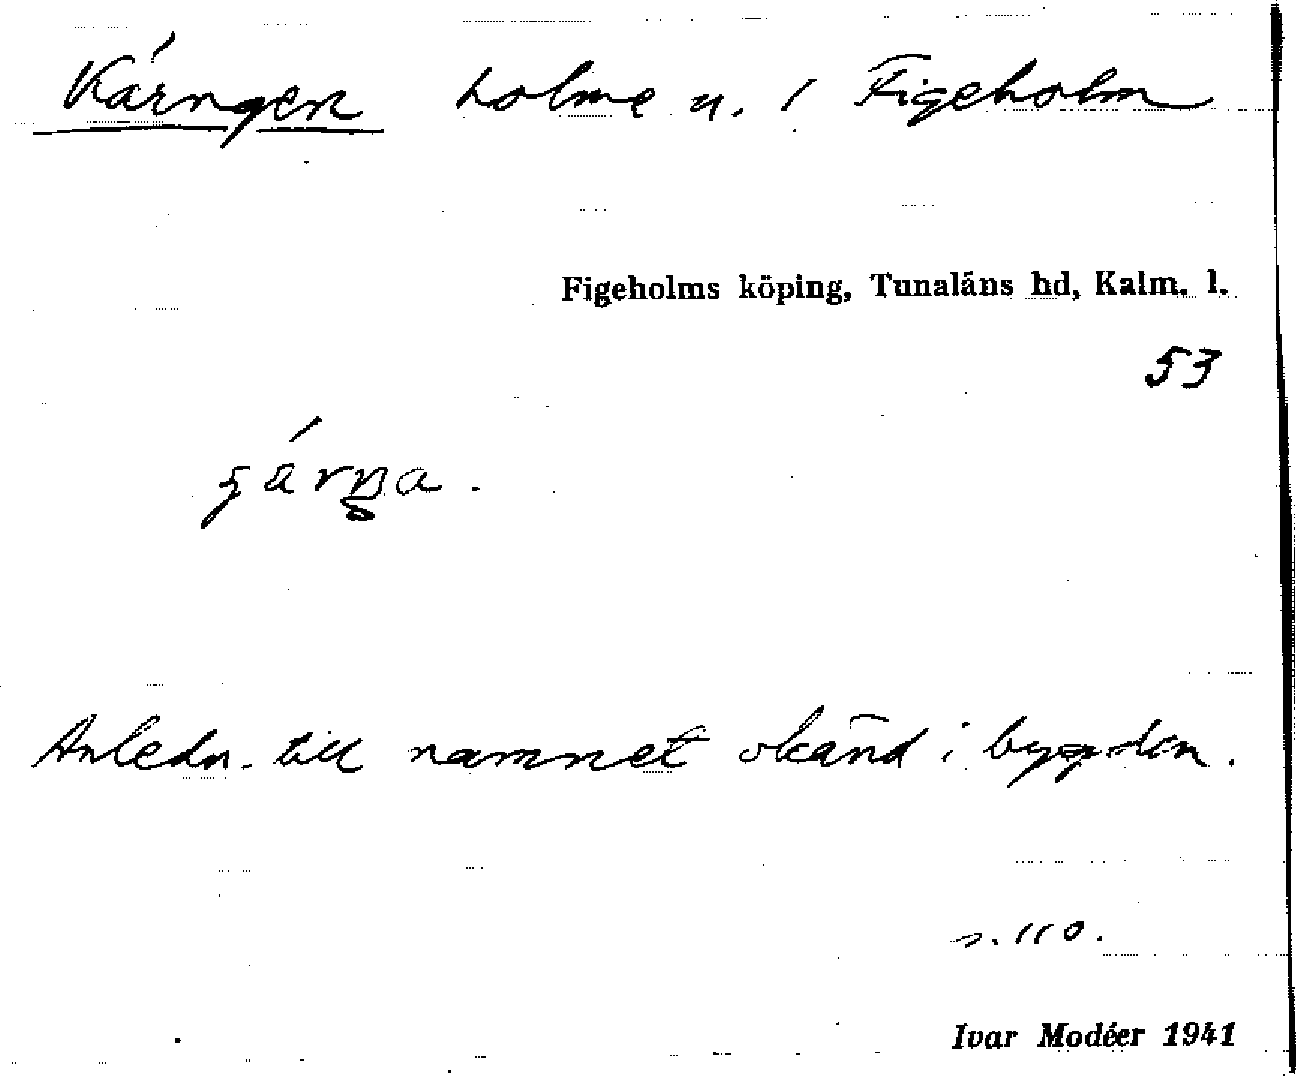 Kärngen holme n. / Figeholm
Figeholms köping, Tunaläns hd, Kalm. l.
53
Anledn. till namnet okänd i bygden.
s. 110.
Ivar Modéer 1941